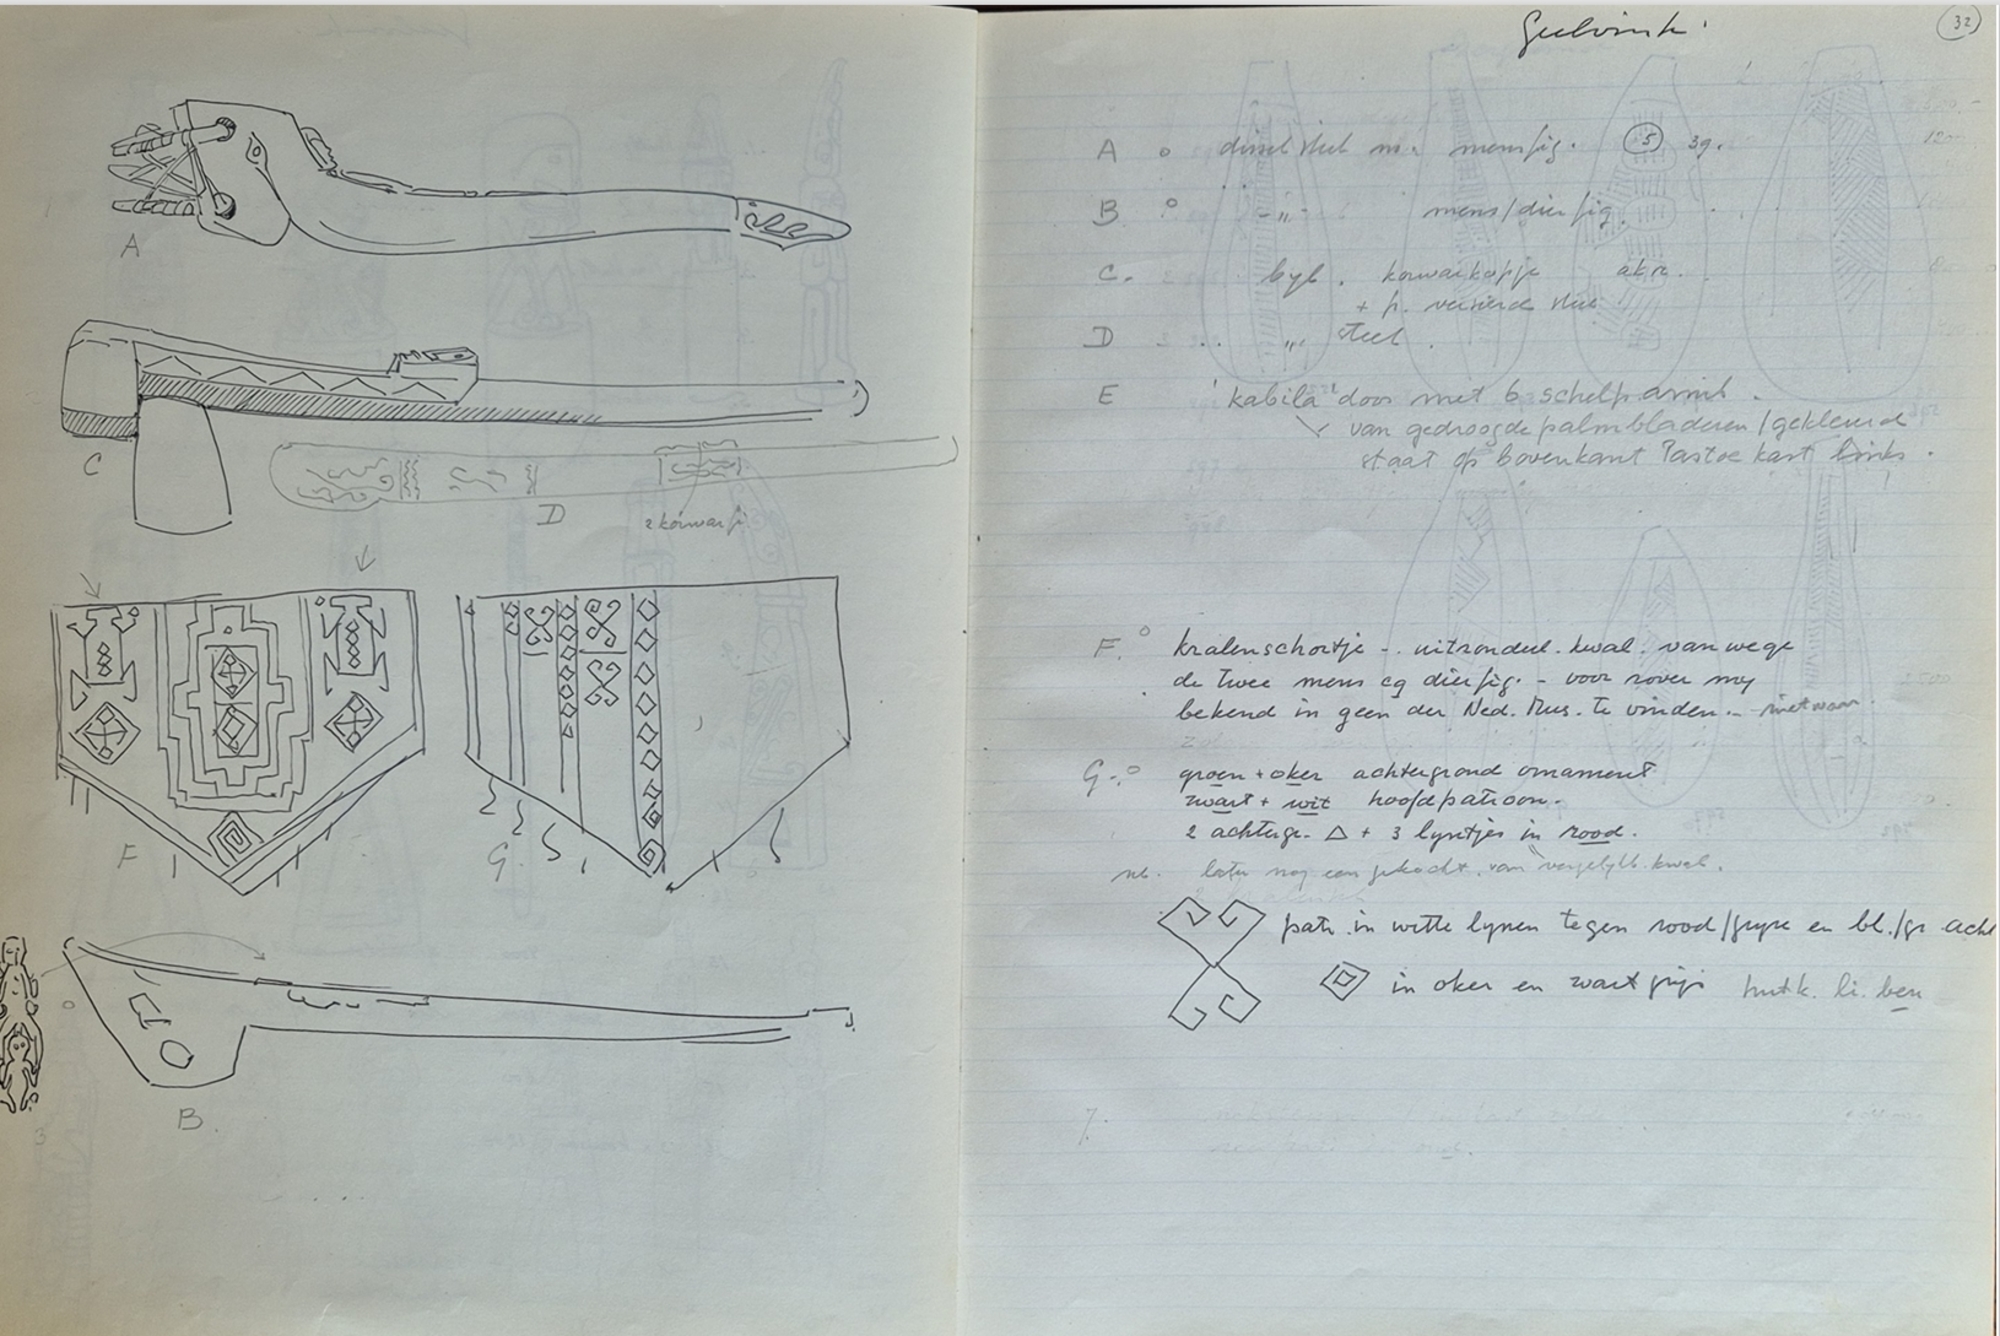 Geelvink
32
A dissel steel m. mensfig. 5 39.
B -"- mens/dierfig.
C. byl. korwarkopje
+ p. versierde steel
D "" steel.
E 'kabila' doos met 6 schelp armb.
van gedroogde palmbladeren / gekleurd
staat op bovenkant Pastoe kast links.
F. kralenschortje - uitzonderl. kwal. vanwege
de twee mens cq dierfig. - voor zover my
bekend in geen der Ned. Mus. te vinden. - niet waar.
G. groen + oker achtergrond ornament
zwart + wit hoofdpatroon.
2 achtergr. △ + 3 lyntjes in rood.
nb. later nog een gekocht, van vergelykb. kwal.
patr. in witte lynen tegen rood/gryze en bl./gr acht
in oker en zwart grijs li. ben
A
C
D
2 korwarfi
F
G.
B.
3